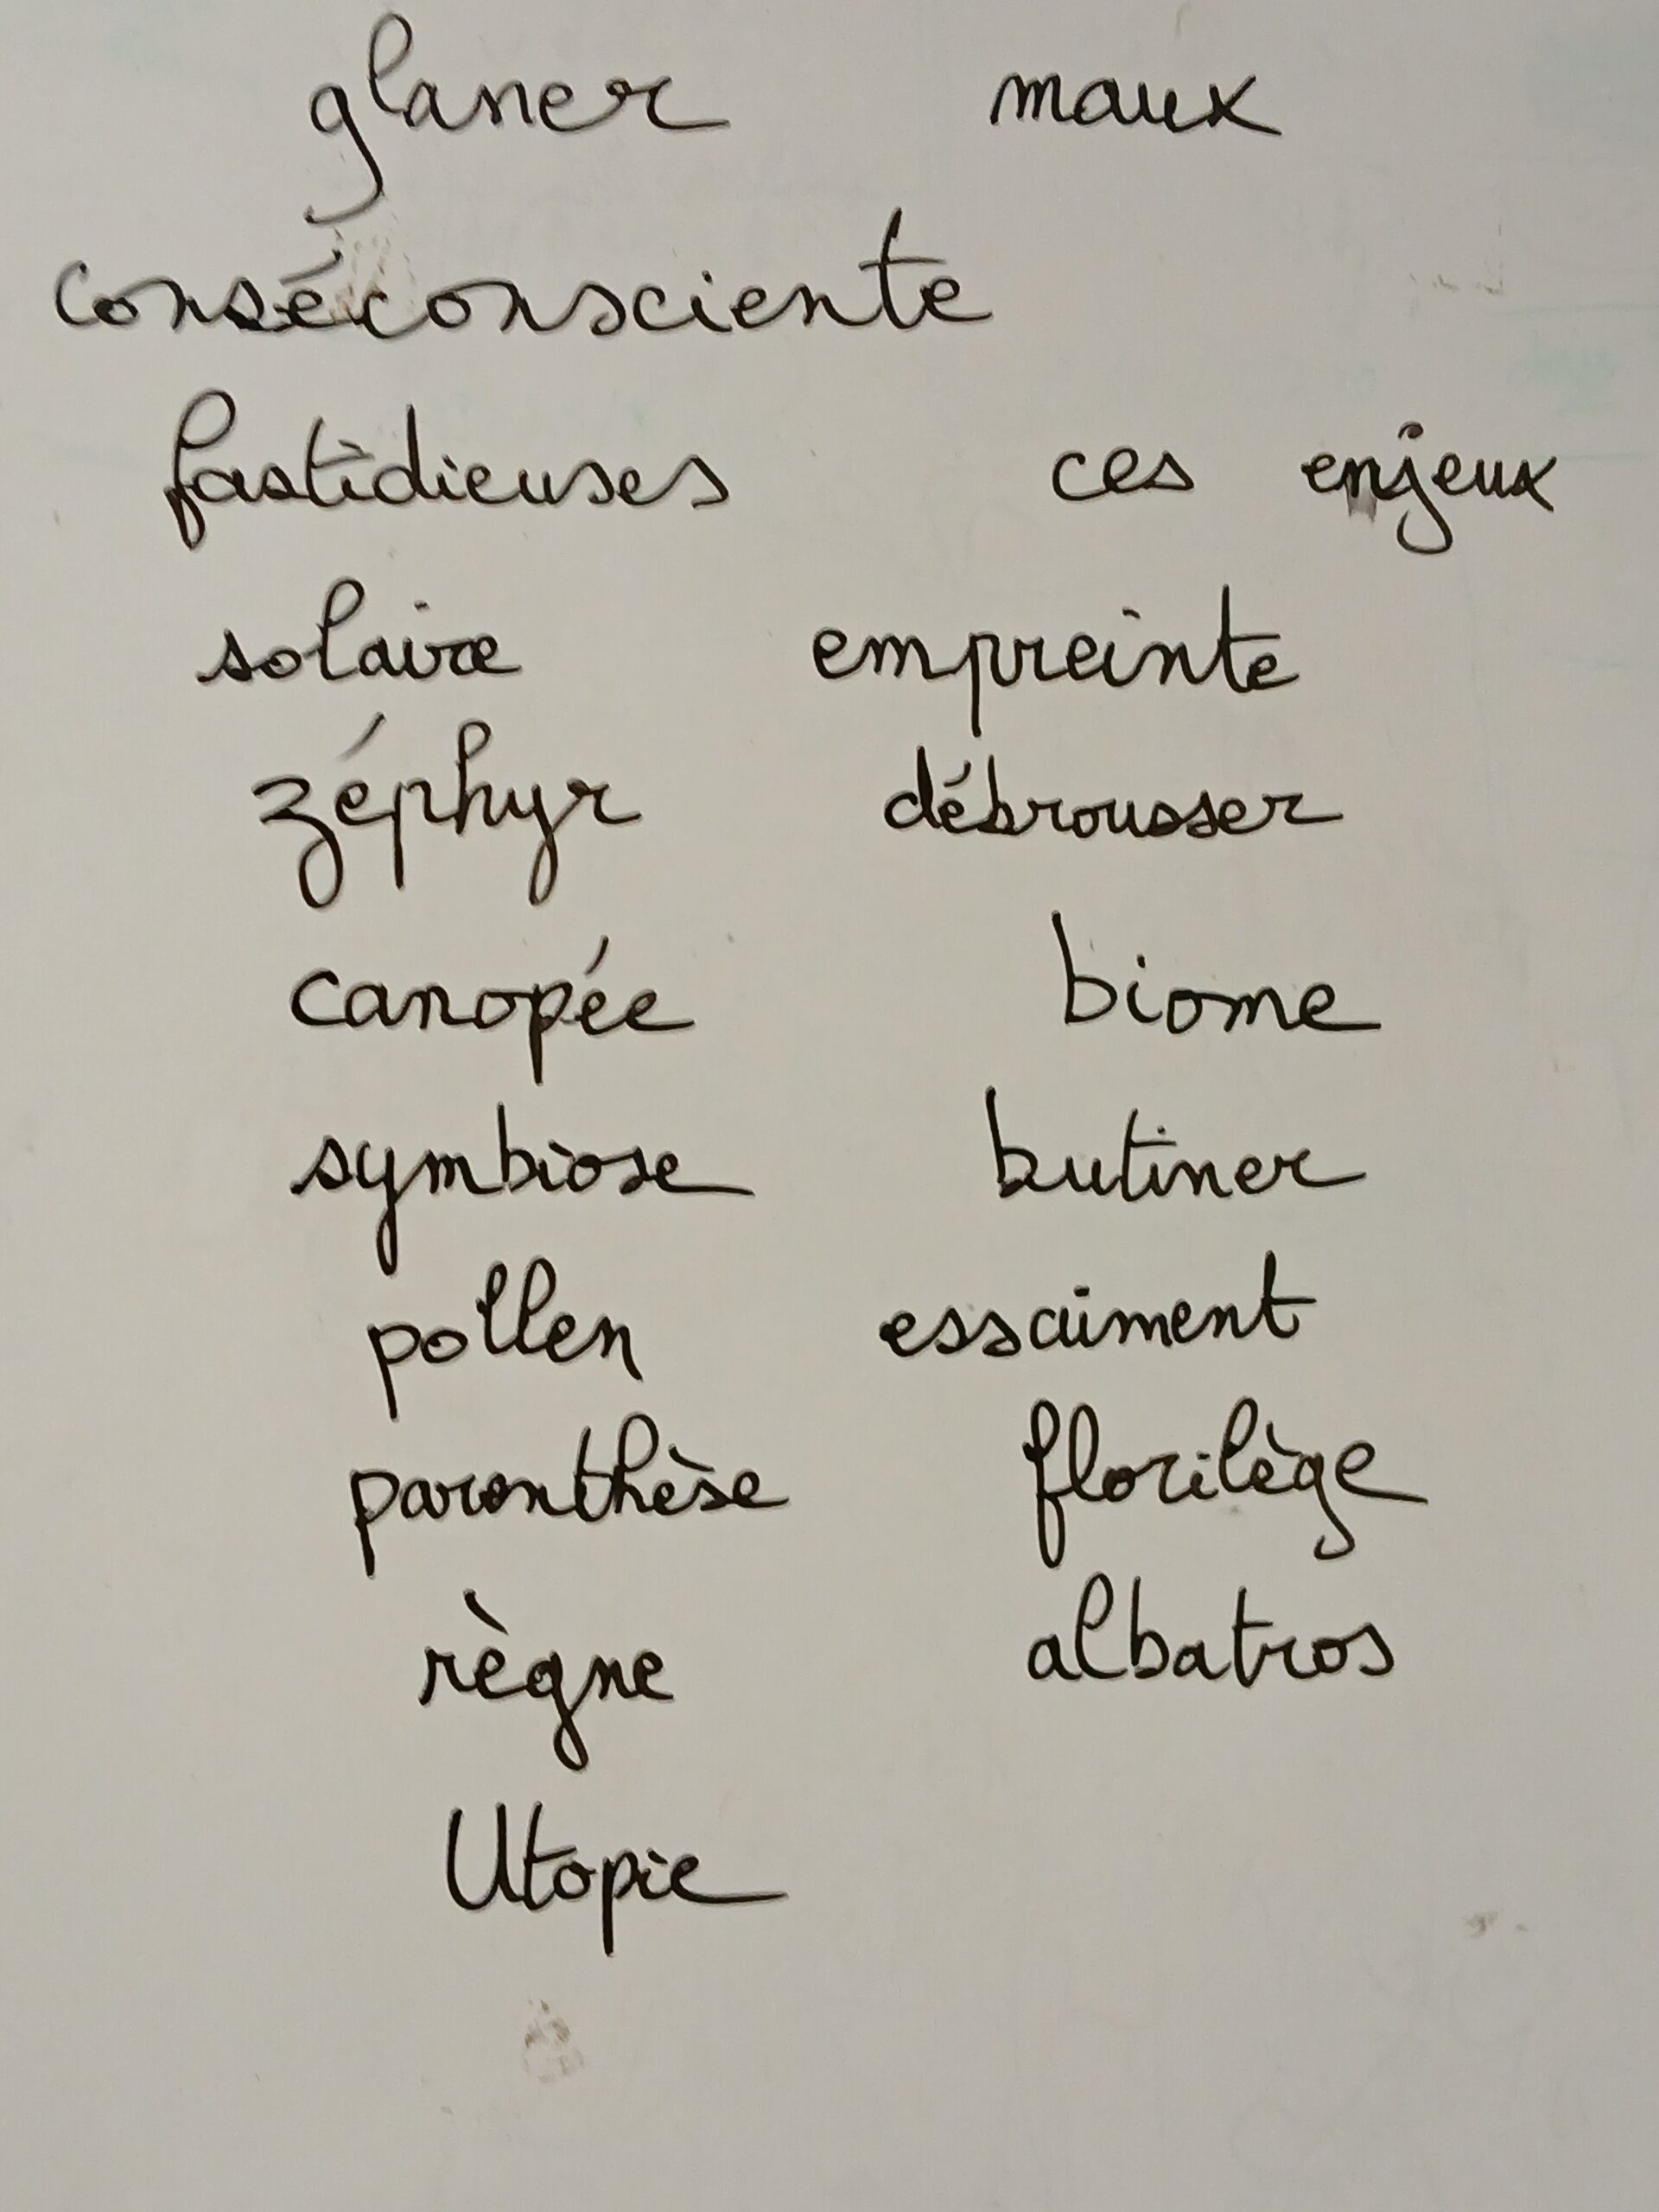 glaner maux
conséconsciente
fastidieuses ces enjeux
solaire empreinte
zéphyr débrousser
canopée biome
symbiose butiner
pollen essaiment
parenthèse florilège
règne albatros
Utopie